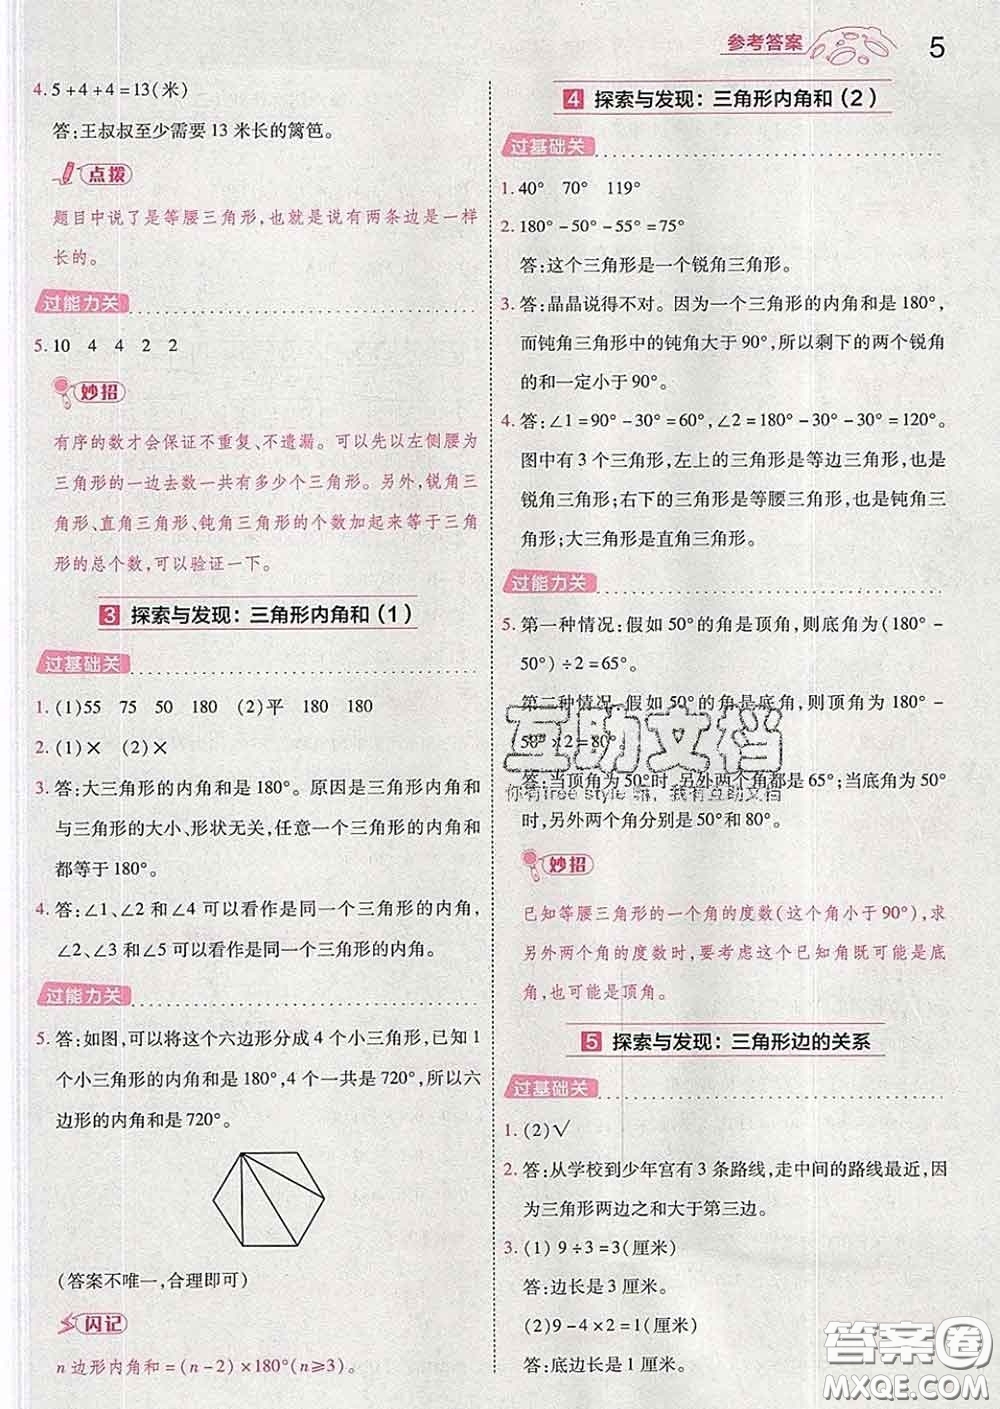 参考答案 5
4. 5+4+4=13(米)
答:王叔叔至少需要 13 米长的篱笆。
点拨
题目中说了是等腰三角形,也就是说有两条边是一样
长的。
过能力关
5. 10 4 4 2 2
妙招
有序的数才会保证不重复、不遗漏。可以先以左侧腰为
三角形的一边去数一共有多少个三角形。另外,锐角三
角形、直角三角形、钝角三角形的个数加起来等于三角
形的总个数,可以验证一下。
3 探索与发现:三角形内角和(1)
过基础关
1. (1)55 75 50 180 (2)平 180 180
2. (1)× (2)×
3. 答:大三角形的内角和是 180°。原因是三角形内角和
与三角形的大小、形状无关,任意一个三角形的内角和
都等于 180°。
4. 答:∠1、∠2 和∠4 可以看作是一个三角形的内角,
∠2、∠3 和∠5 可以看作是另一个三角形的内角。
过能力关
5. 答:如图,可以将这个六边形分成 4 个小三角形,已知 1
个小三角形的内角和是 180°,4 个一共是 720°,所以六
边形的内角和是 720°。
(答案不唯一,合理即可)
闪记
n 边形内角和=(n-2)×180°(n≥3)。
4 探索与发现:三角形内角和(2)
过基础关
1. 40° 70° 119°
2. 180°-50°-55°=75°
答:这个三角形是一个锐角三角形。
3. 答:晶晶说得不对。因为一个三角形的内角和是 180°,
而钝角三角形中的钝角大于 90°,所以剩下的两个锐角
的和一定小于 90°。
4. 答:∠1=90°-30°=60°,∠2=180°-30°-30°=120°。
图中有 3 个三角形,左上的三角形是等边三角形,也是
锐角三角形;右下的三角形是等腰三角形,也是钝角三
角形;大三角形是直角三角形。
过能力关
5. 第一种情况:假如 50°的角是顶角,则底角为(180°-
50°)÷2=65°。
第二种情况:假如 50°的角是底角,则顶角为 180°
-50°×2=80°
答:当顶角为 50°时,另外两个角都是 65°;当底角为 50°
时,另外两个角分别是 50°和 80°。
互助文档
你有free style嘛,我有互助文档
妙招
已知等腰三角形的一个角的度数(这个角小于 90°),求
另外两个角的度数时,要考虑这个已知角可能是底
角,也可能是顶角。
5 探索与发现:三角形边的关系
过基础关
1. (2)√
2. 答:从学校到少年宫有 3 条路线,走中间的路线最近,因
为三角形两边之和大于第三边。
3. (1) 9÷3=3(厘米)
答:边长是 3 厘米。
(2)9-4×2=1(厘米)
答:底边长是 1 厘米。
答案圈
MXQE.COM